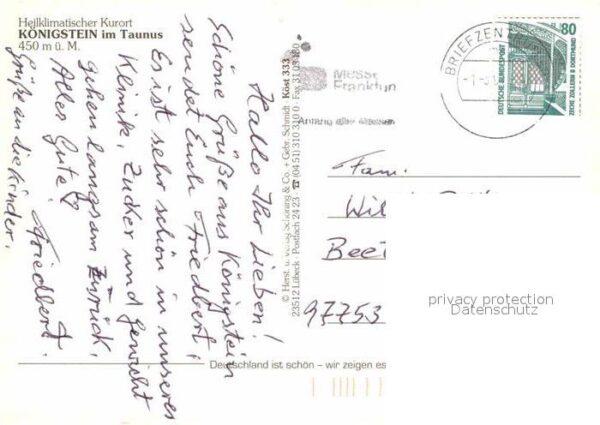 Heilklimatischer Kurort
KÖNIGSTEIN im Taunus
450 m ü. M.
Hallo Ihr Lieben!
Schöne Grüße aus Königstein
sendet Euch Friedbert,
Es ist sehr schön in unserer
Klinik, Zucker und Gewicht
gehen langsam zurück,
Alles Gute!
Friedbert.
Grüße an die Kinder.
© Herst. u. Verlag Schöning & Co. + Gebr. Schmidt Köst 333
23512 Lübeck · Postfach 24 23 · ☎ (04 51) 310 31 0 · Fax
Messe
Frankfurt
BRIEFZENT
80
DEUTSCHE BUNDESPOST
ZECHE ZOLLERN II DORTMUND
Fam.
Wil
Beet
97753
privacy protection
Datenschutz
Deutschland ist schön – wir zeigen es